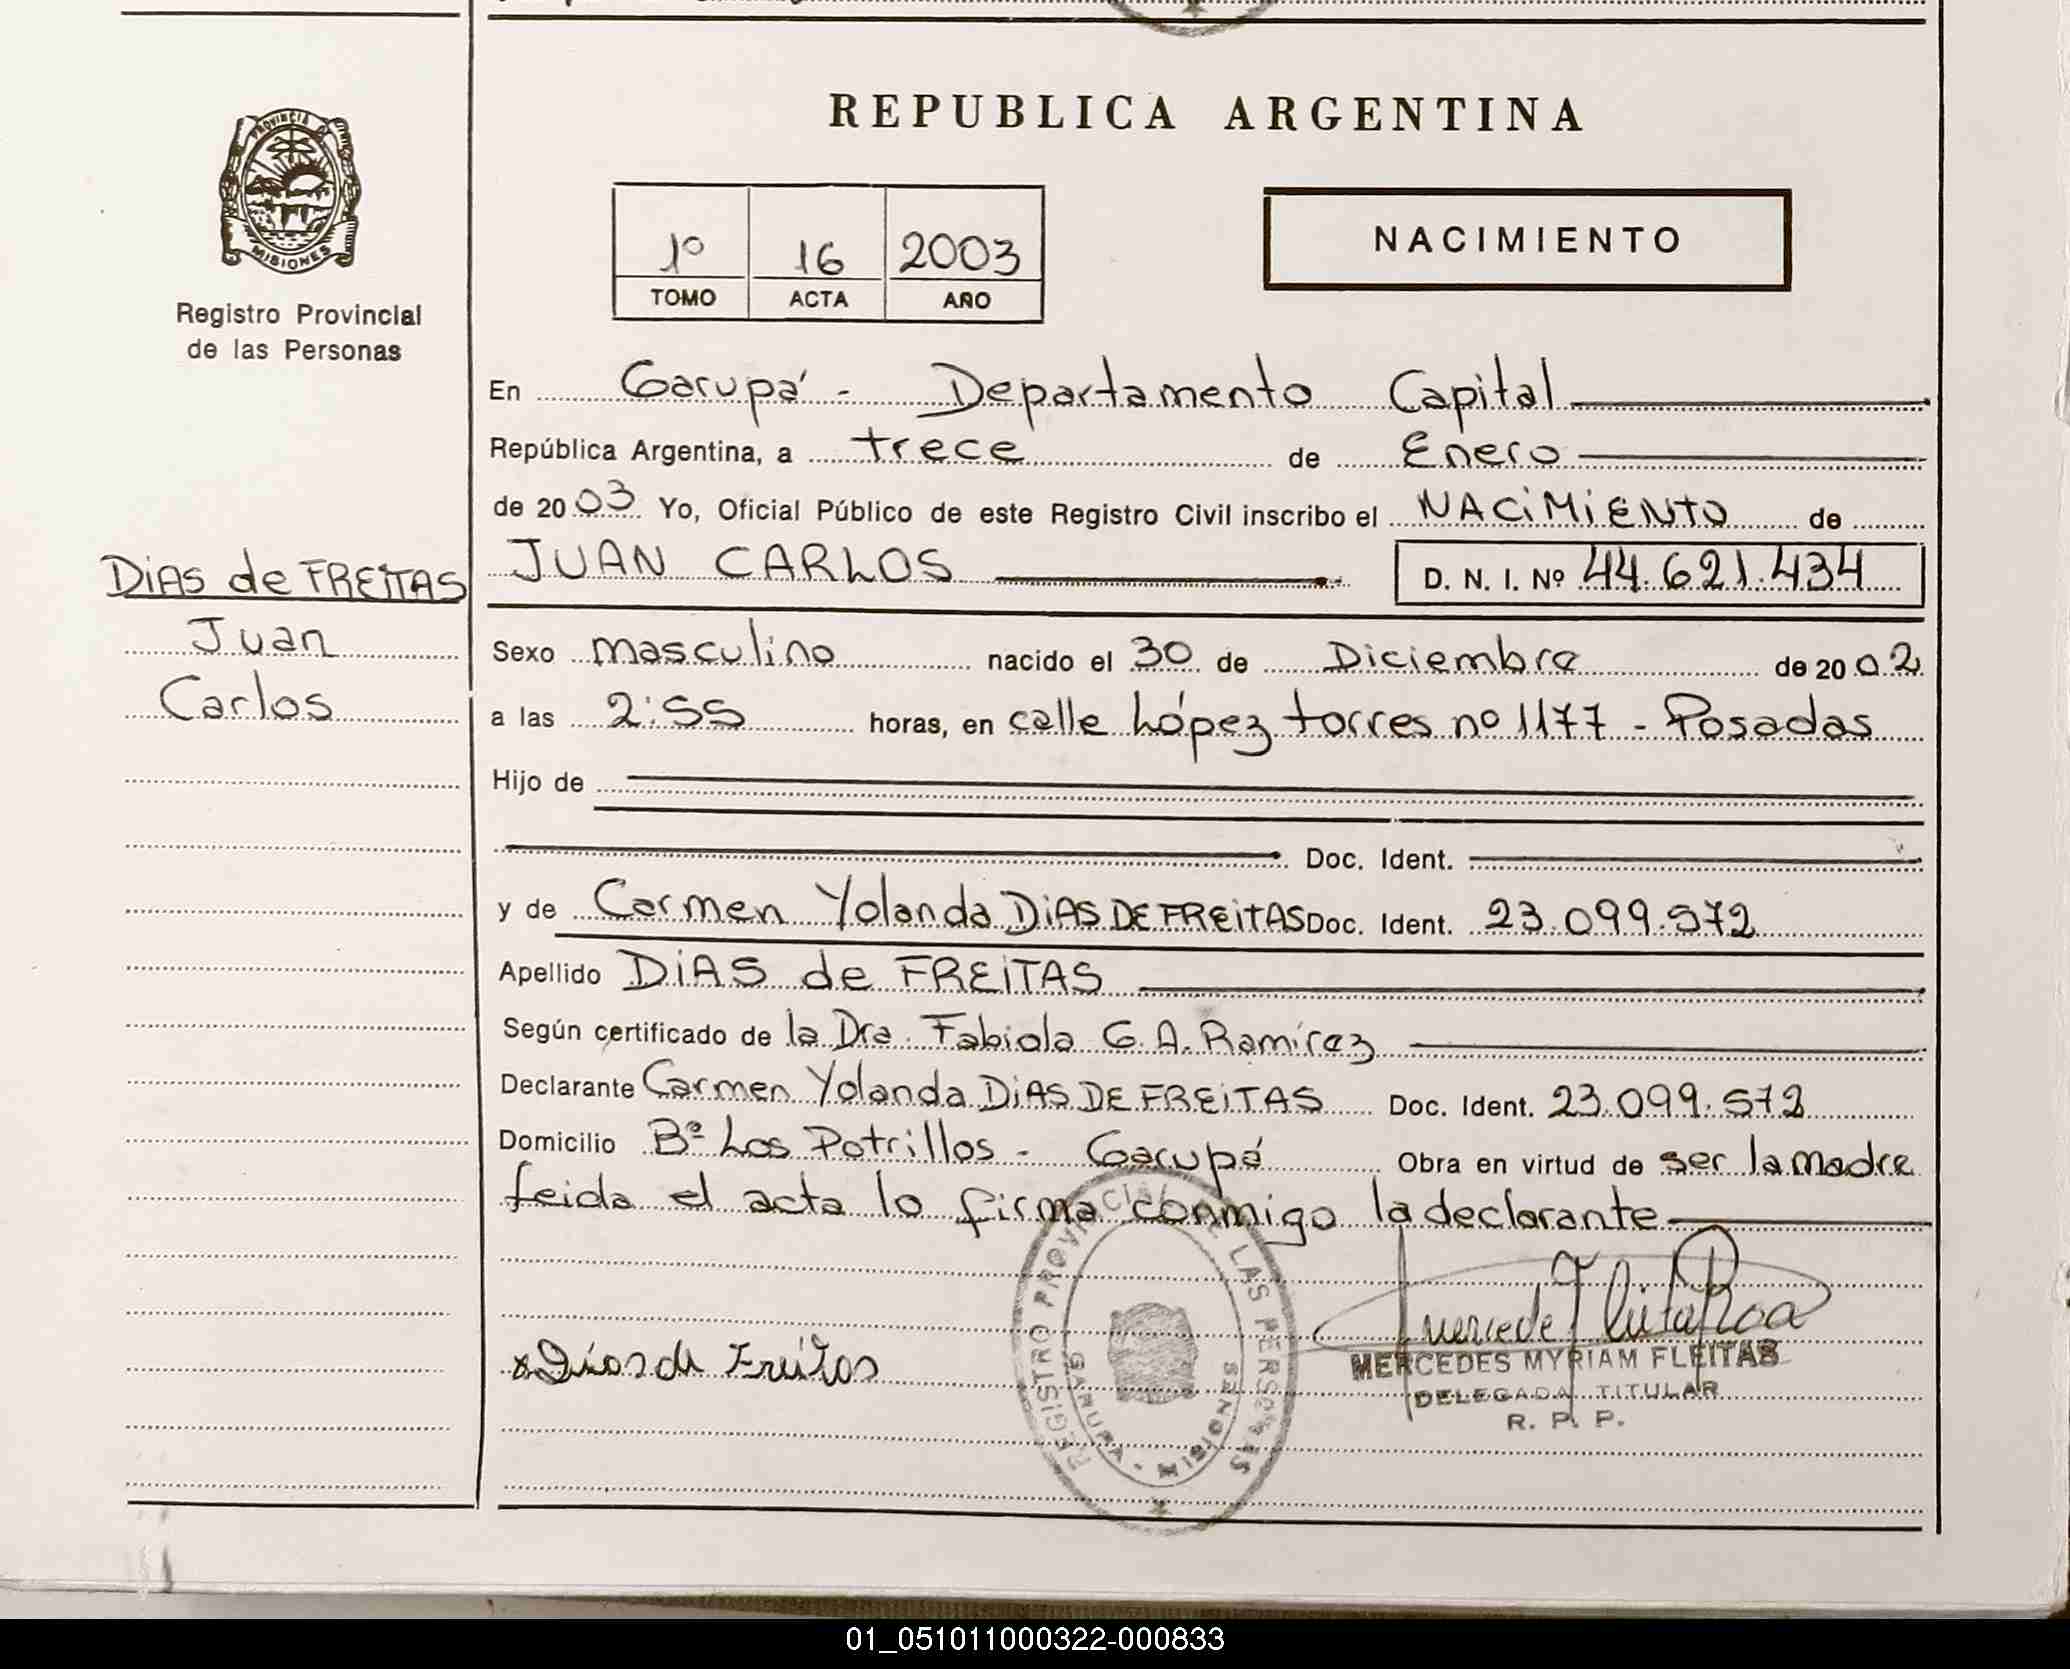 REPUBLICA ARGENTINA
PROVINCIA DE
MISIONES
Registro Provincial
de las Personas
1º 16 2003
TOMO ACTA AÑO
NACIMIENTO
En Garupá - Departamento Capital
República Argentina, a trece de Enero
de 2003 Yo, Oficial Público de este Registro Civil inscribo el NACIMIENTO de
JUAN CARLOS D. N. I. Nº 44.621.434
DIAS de FREITAS
Juan
Carlos
Sexo masculino nacido el 30 de Diciembre de 2002
a las 2:55 horas, en calle López torres nº 1177 - Posadas
Hijo de
Doc. Ident.
y de Carmen Yolanda DIAS DE FREITAS Doc. Ident. 23.099.572
Apellido DIAS de FREITAS
Según certificado de la Dra. Fabiola G. A. Ramírez
Declarante Carmen Yolanda DIAS DE FREITAS Doc. Ident. 23.099.572
Domicilio Bº Los Potrillos - Garupá Obra en virtud de ser la madre
feida el acta lo firma conmigo la declarante
x Dias de Freitas
REGISTRO PROVINCIAL DE LAS PERSONAS
GARUPA - MISIONES
MERCEDES MYRIAM FLEITAS
DELEGADA TITULAR
R. P. P.
01_051011000322-000833